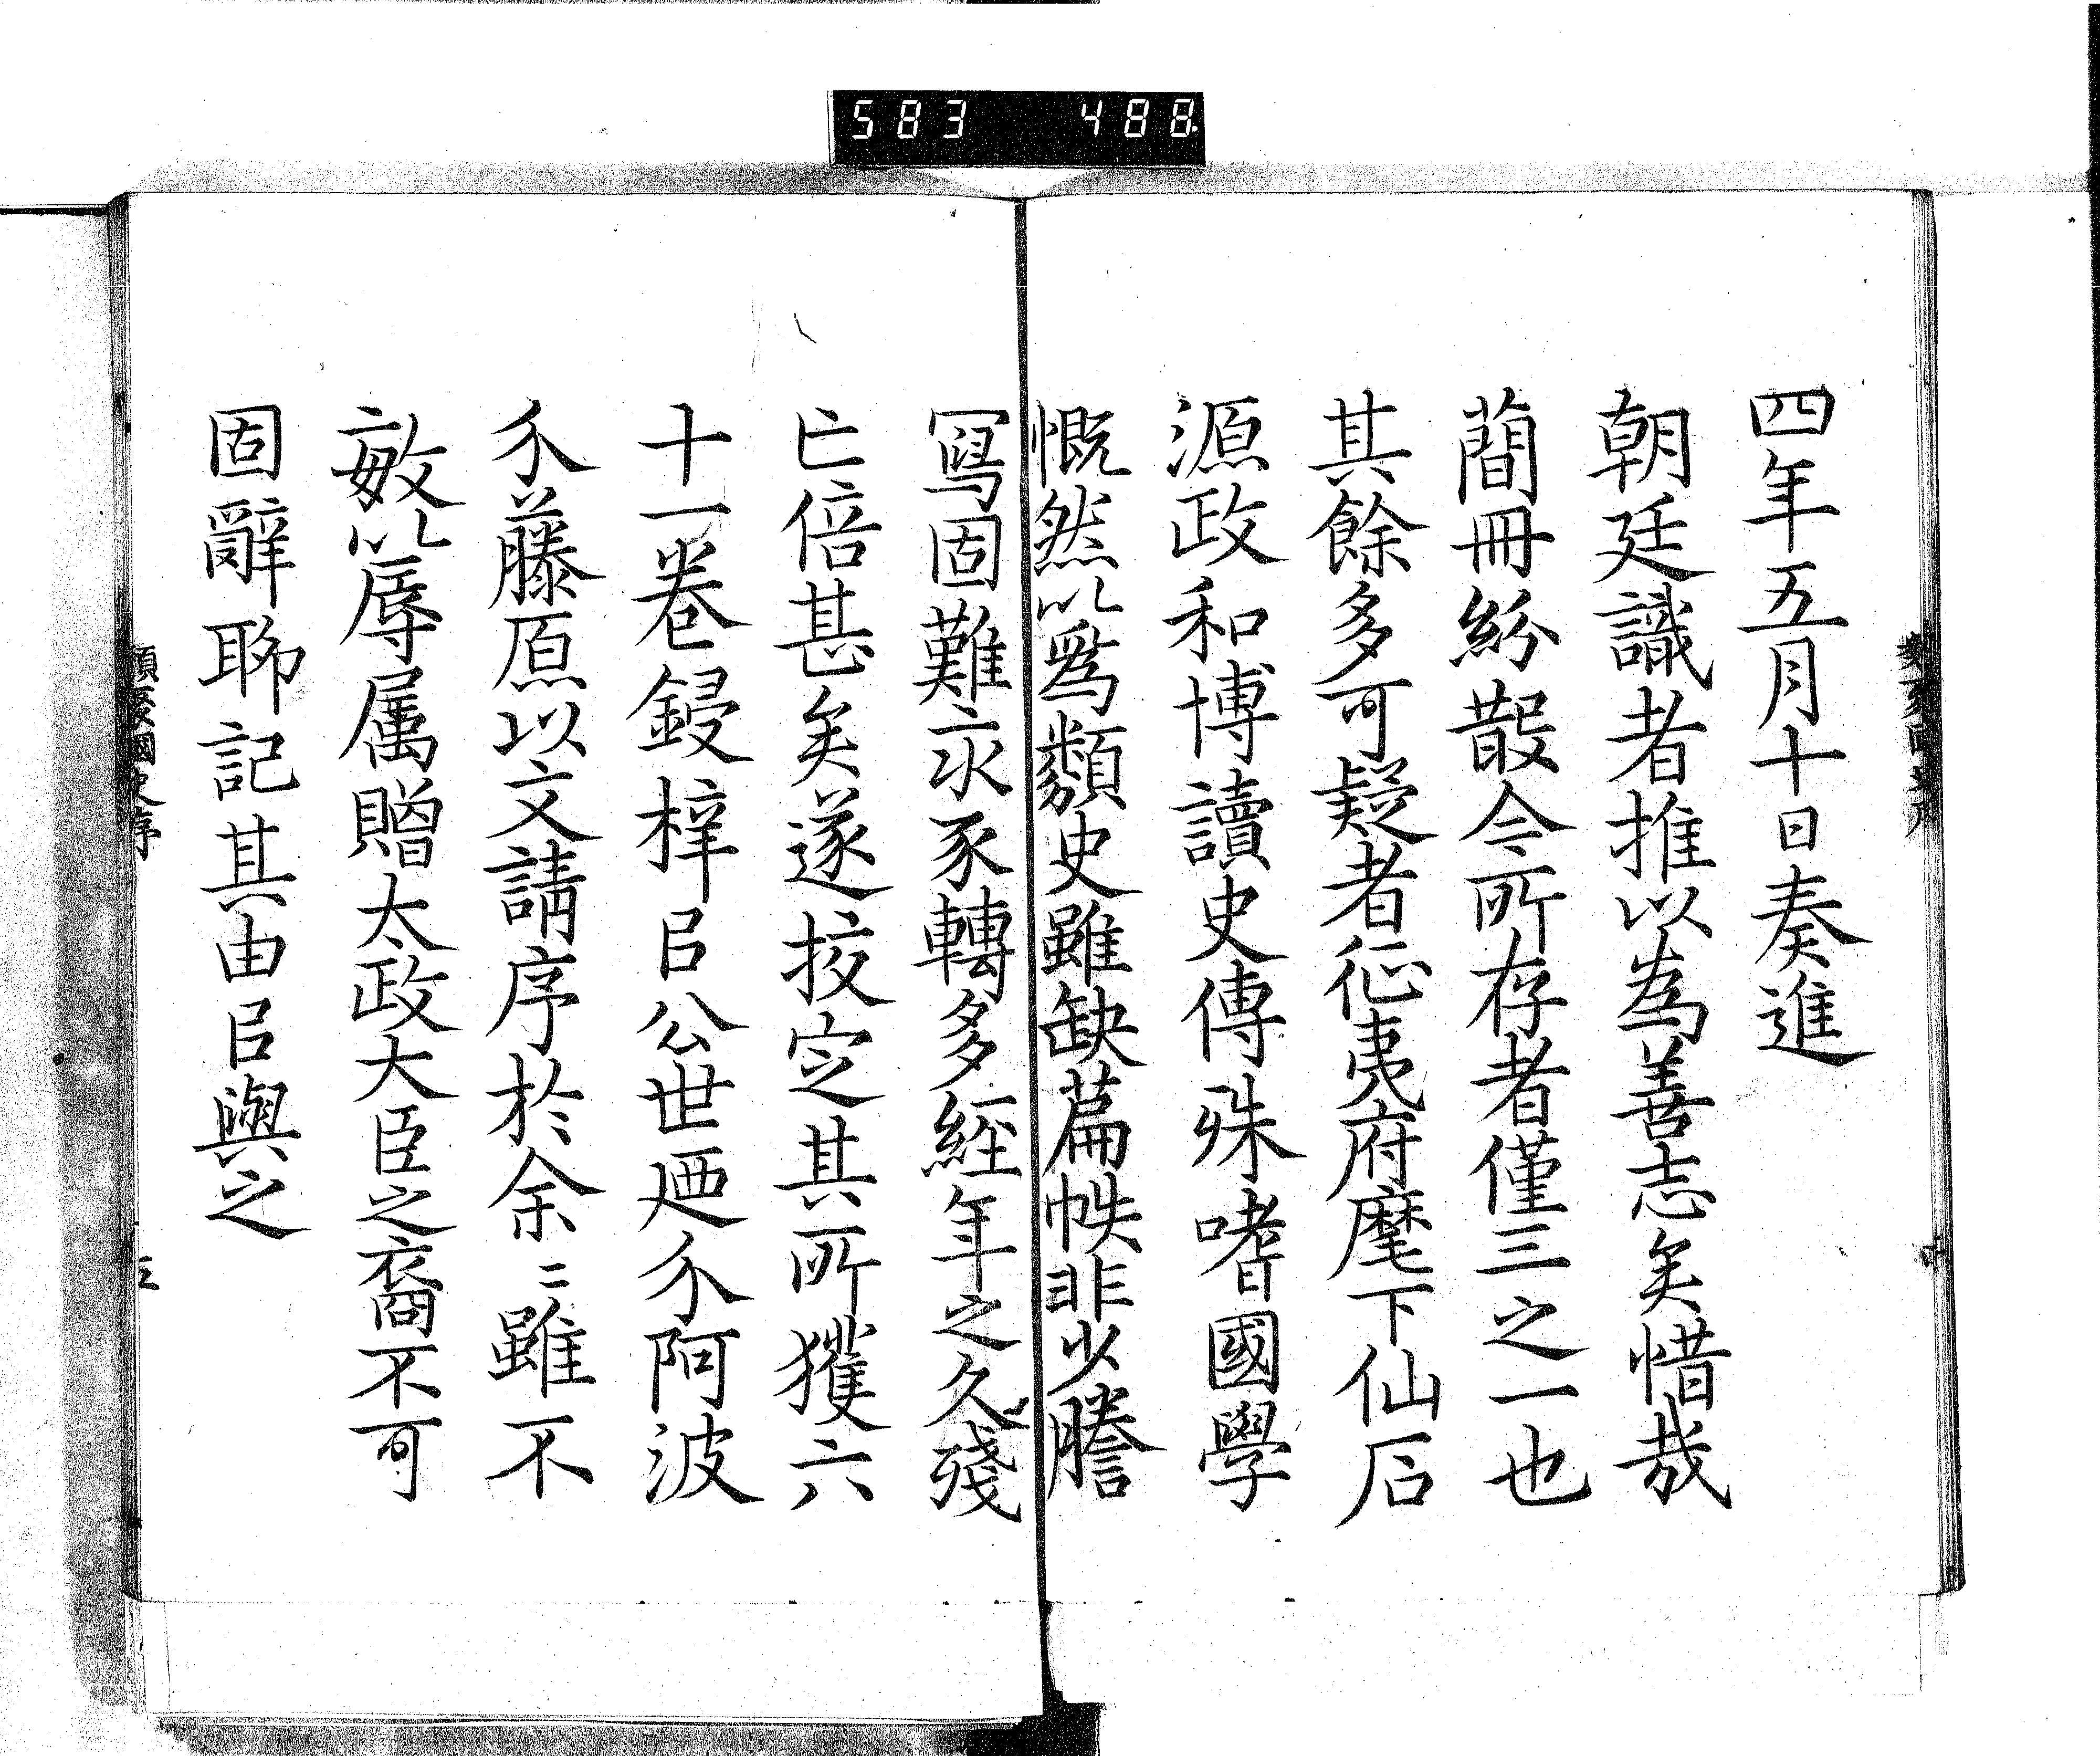 583 488
四年五月十日奏進
朝廷識者推以為善志矣惜哉
蕳冊紛散今所存者僅三之一也
其餘多可疑者征夷府麾下仙石
源政和博讀史傳殊嗜國學
慨然以爲類史雖缺篇帙非少謄
冩固難求豕轉多經年之久殘
亡倍甚矣遂挍定其所獲六
十一卷鋟梓㠯公世廼介阿波
介藤原以文請序於余〻雖不
敏以辱属贈太政大臣之裔不可
固辭聊記其由㠯與之
類聚國史序